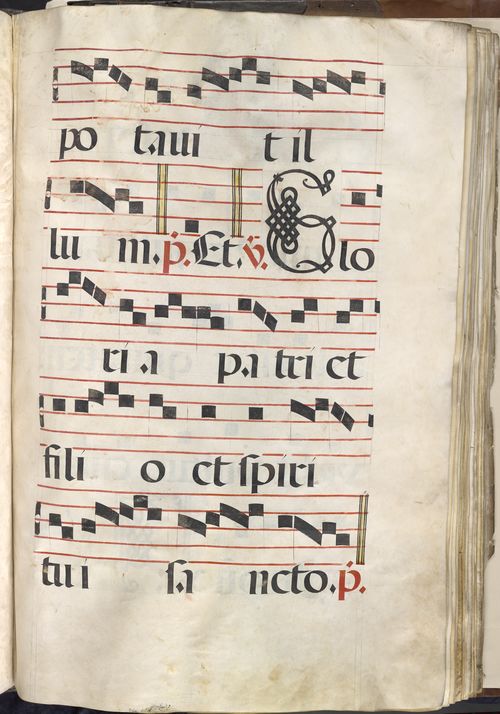 po tavi t il
lu m. p̃. Et. ṽ. Glo
ri a pa tri et
fili o et spiri
tu i sa ncto. p̃.